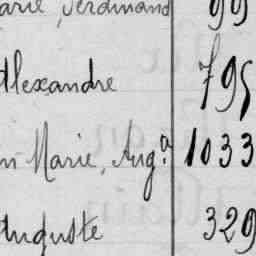 arie, Ferdinand 99
Alexandre 795
n Marie, Aug.a 1033
Auguste 329